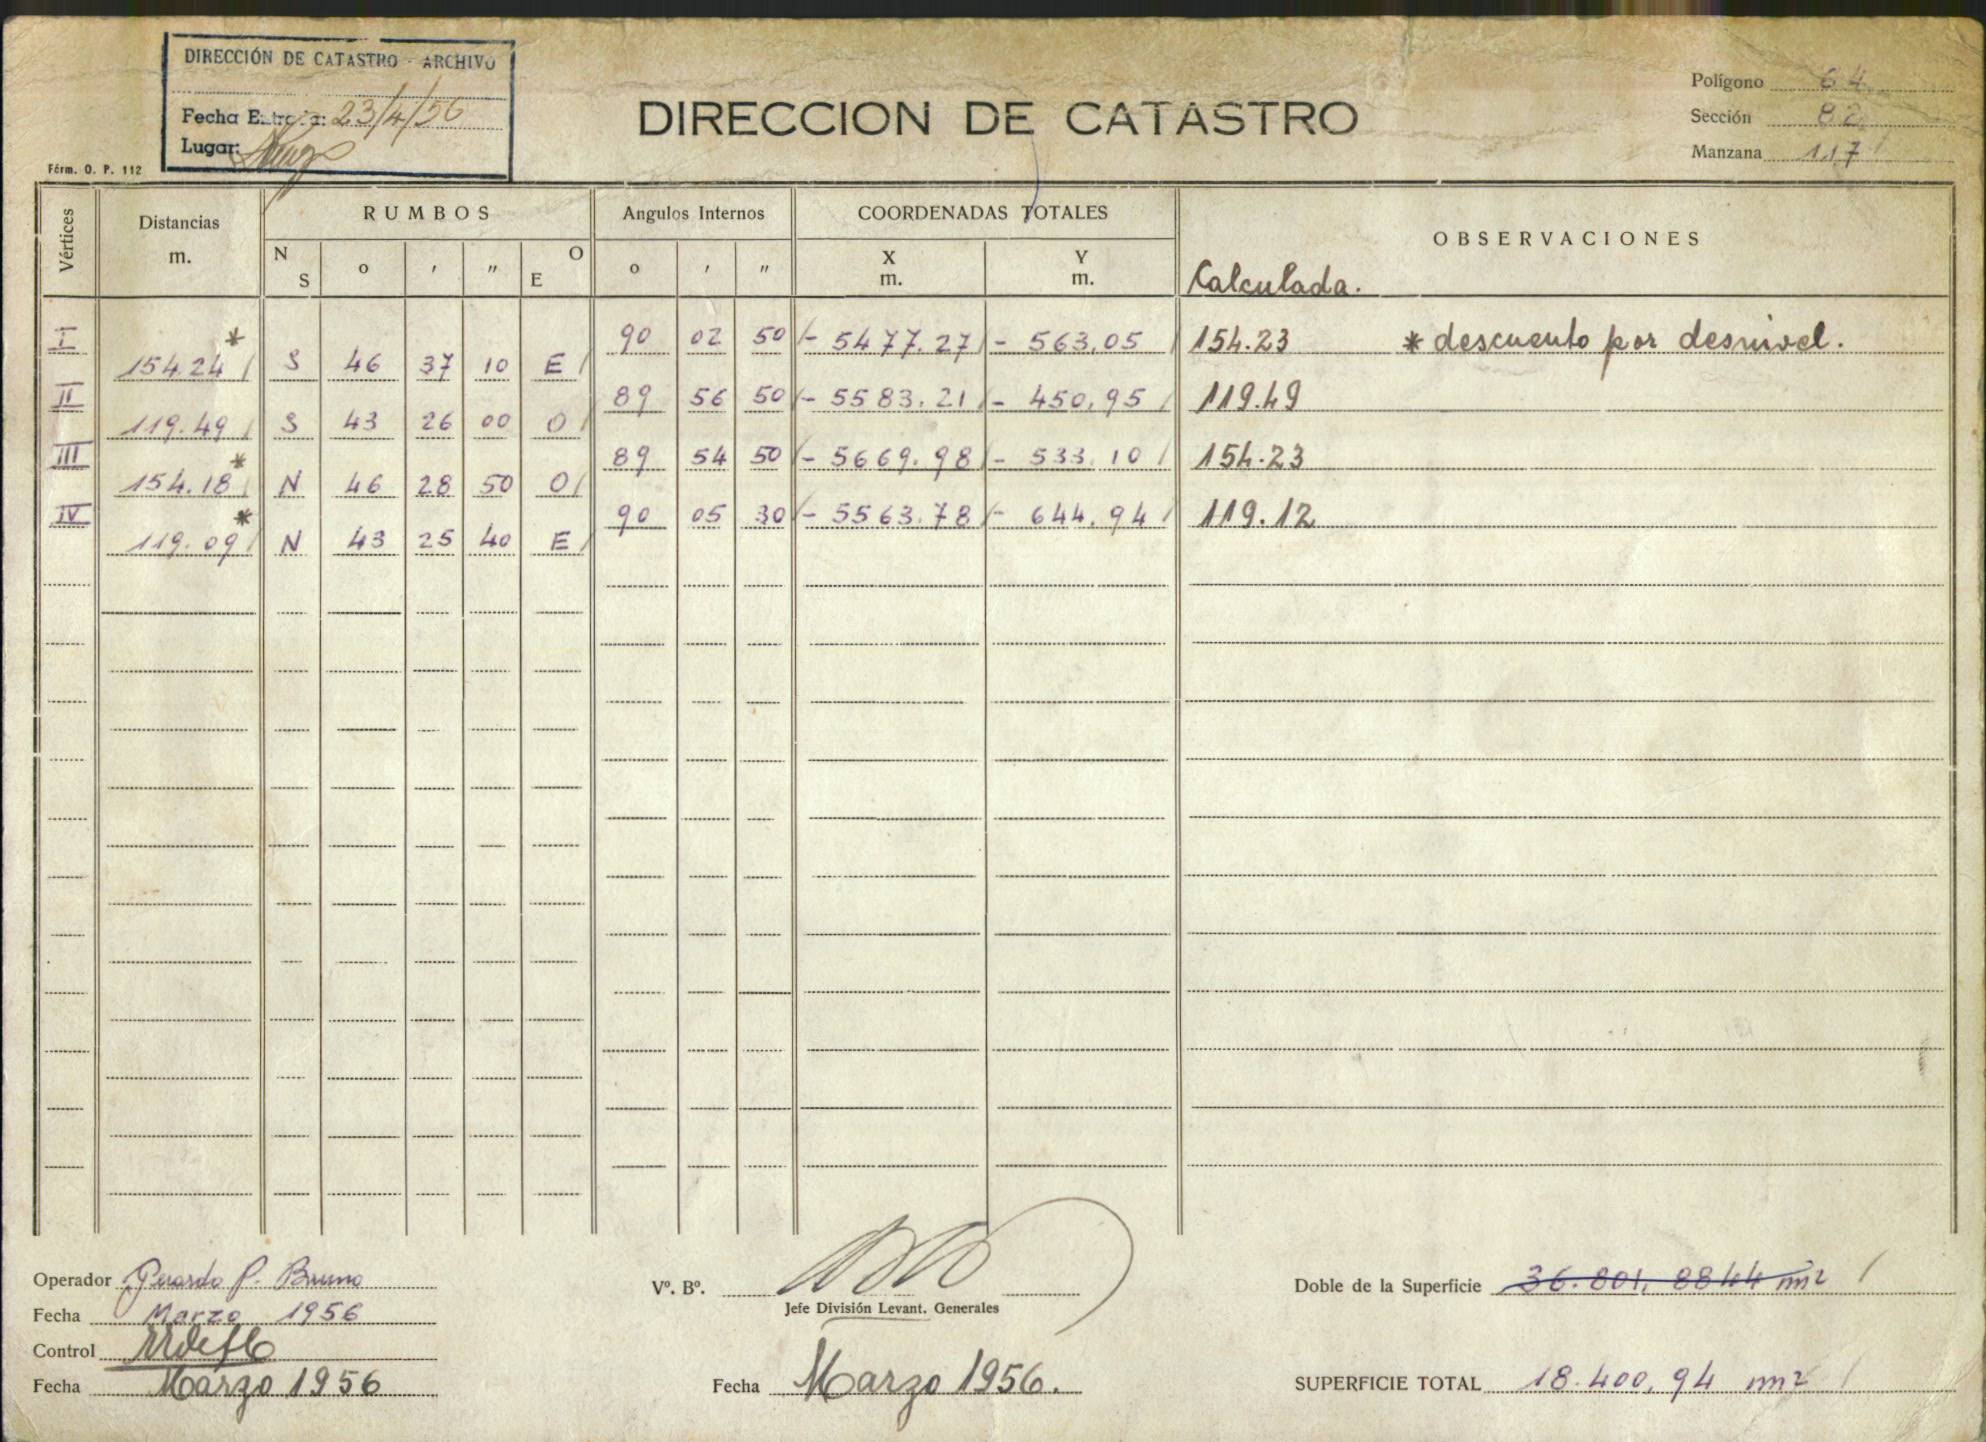 DIRECCIÓN DE CATASTRO - ARCHIVO
Fecha Entrada: 23/4/56
Lugar:
Fórm. O. P. 112
DIRECCION DE CATASTRO
Polígono 64
Sección 82
Manzana 117
Vértices Distancias m. RUMBOS Angulos Internos COORDENADAS TOTALES OBSERVACIONES
N S o ' " O E o ' " X m. Y m. Calculada.
I 90 02 50 - 5477.27 - 563,05 154.23 * descuento por desnivel.
154.24 * S 46 37 10 E
II 89 56 50 - 5583.21 - 450,95 119.49
119.49 S 43 26 00 O
III 89 54 50 - 5669.98 - 533.10 154.23
154.18 * N 46 28 50 O
IV 90 05 30 - 5563.78 - 644,94 119.12
119.09 * N 43 25 40 E
Operador Gerardo P. Bruno
Fecha Marzo 1956
Control
Fecha Marzo 1956
Vº. Bº.
Jefe División Levant. Generales
Fecha Marzo 1956.
Doble de la Superficie 36.801,8844 m²
SUPERFICIE TOTAL 18.400,94 m²